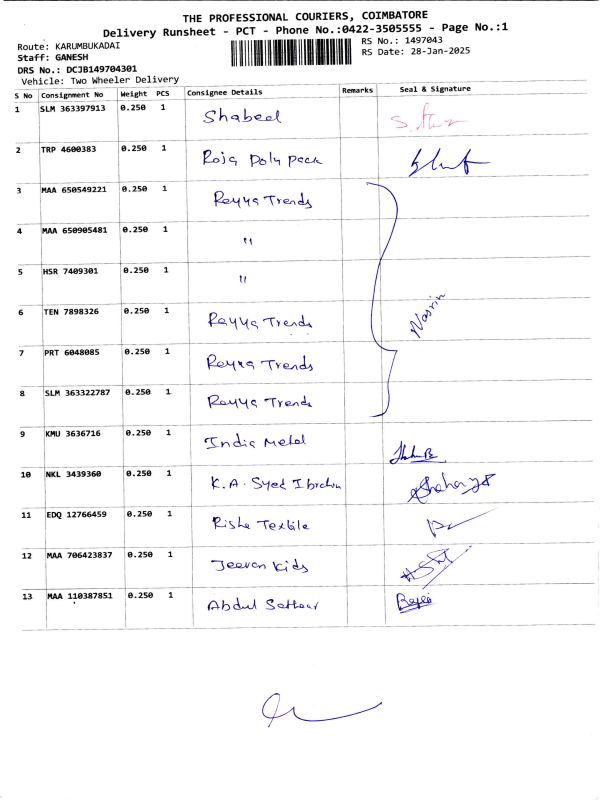 THE PROFESSIONAL COURIERS, COIMBATORE
Delivery Runsheet - PCT - Phone No.:0422-3505555 - Page No.:1
Route: KARUMBUKADAI
RS No.: 1497043
Staff: GANESH
RS Date: 28-Jan-2025
DRS No.: DCJB149704301
Vehicle: Two Wheeler Delivery
S No Consignment No Weight PCS Consignee Details Remarks Seal & Signature
1 SLM 363397913 0.250 1 Shabeel
2 TRP 4600383 0.250 1 Roja Poly Pack
3 MAA 650549221 0.250 1 Rayya Trends
4 MAA 650905481 0.250 1 "
5 HSR 7409301 0.250 1 "
6 TEN 7898326 0.250 1 Rayya Trends Nasrin
7 PRT 6048085 0.250 1 Rayya Trends
8 SLM 363322787 0.250 1 Rayya Trends
9 KMU 3636716 0.250 1 India Metal
10 NKL 3439360 0.250 1 K.A. Syed Ibrahim
11 EDQ 12766459 0.250 1 Risha Textile
12 MAA 706423837 0.250 1 Jeevan Kids
13 MAA 110387851 0.250 1 Abdul Sattar